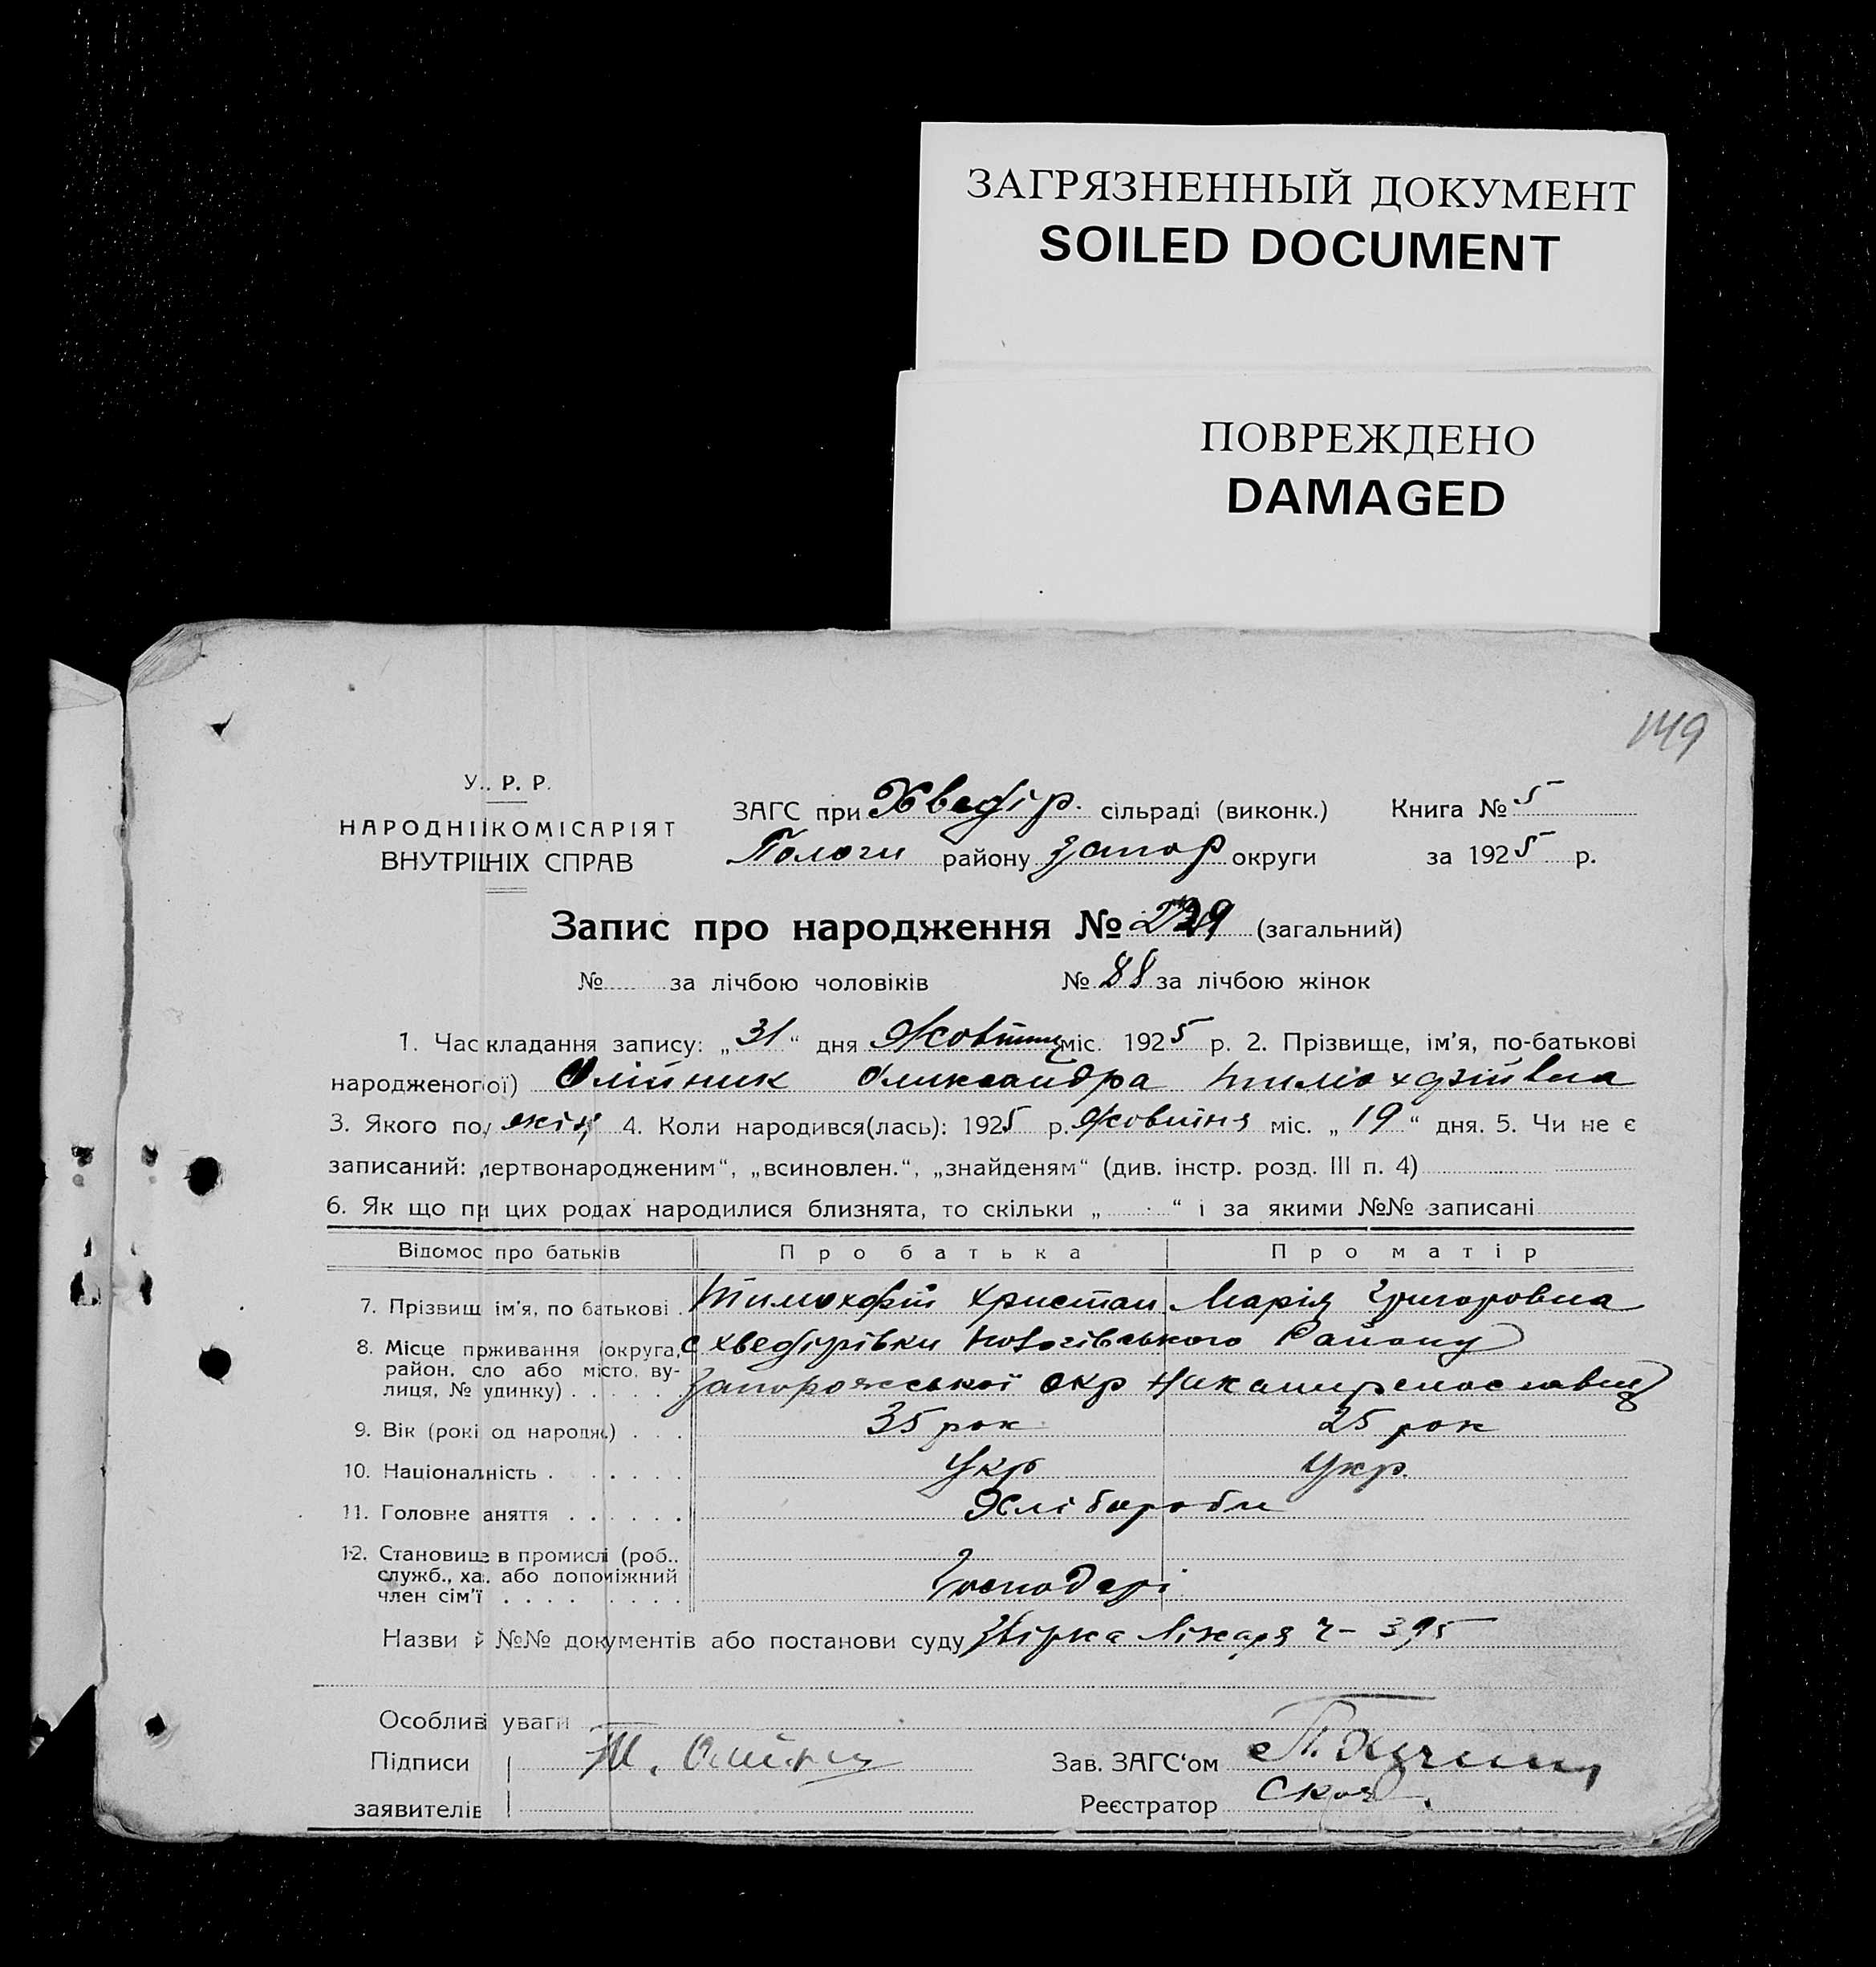 ЗАГРЯЗНЕННЫЙ ДОКУМЕНТ
SOILED DOCUMENT
ПОВРЕЖДЕНО
DAMAGED
149
У.. Р. Р.
НАРОДНІ КОМІСАРІЯТ
ВНУТРІШНІХ СПРАВ
ЗАГС при Хведір. сільраді (виконк.) Книга № 5
Пологи району Запор округи за 1925 р.
Запис про народження № 229 (загальний)
№ за лічбою чоловіків № 88 за лічбою жінок
1. Час кладання запису: „31“ дня Жовтня міс. 1925 р. 2. Прізвище, ім'я, по-батькові
народженого ої) Олійник Олександра Тимохфіївна
3. Якого пол жін 4. Коли народився(лась): 1925 р. Жовтня міс. „19“ дня. 5. Чи не є
записаний: мертвонародженим“, „всиновлен.“, „знайденям“ (див. інстр. розд. III п. 4)
6. Як що при цих родах народилися близнята, то скільки „ “ і за якими №№ записані
Відомос про батьків Про батька Про матір
7. Прізвищ ім'я, по батькові Тимохфій Христан. Марія Григоровна
8. Місце прживання (округа, с Хведірівки Району
район, сло або місто, ву-
лиця, № удинку) Запорожської окр
9. Вік (рокі од народж.) 35 рок 25 рок
10. Національність Укр Укр.
11. Головне аняття Хлібороби
12. Становище в промислі (роб..
служб., ха. або допоміжний
член сім'ї Господарі
Назви й №№ документів або постанови суду Лікаря Ч- 395
Особливі уваги
Підписи Т. Олійник Зав. ЗАГС'ом
заявителів Реєстратор